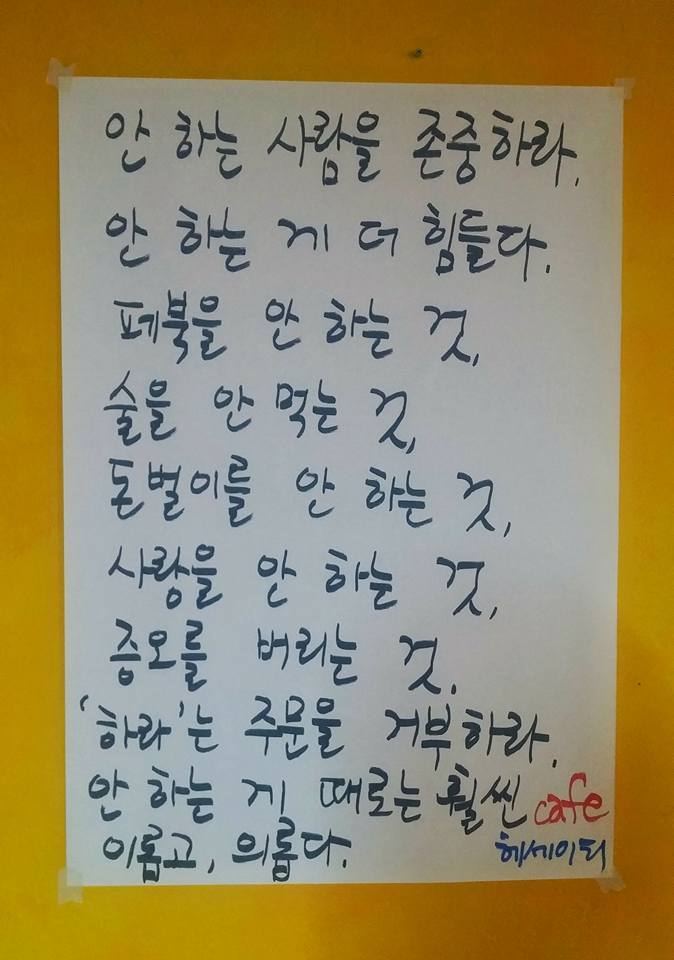 안 하는 사람을 존중하라.
안 하는 게 더 힘들다.
페북을 안 하는 것,
술을 안 먹는 것,
돈벌이를 안 하는 것,
사랑을 안 하는 것,
증오를 버리는 것.
'하라'는 주문을 거부하라.
안 하는 게 때로는 훨씬 cafe
이롭고, 의롭다. 헤세이티